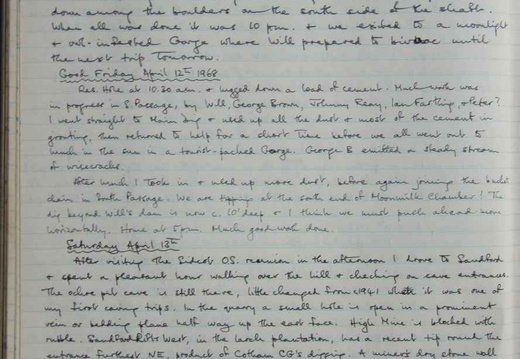 down among the boulders on the south side of the shaft.
When all was done it was 10 pm. & we exited to a moonlight
& owl-infested Gorge where Will prepared to bivouac until
the next trip tomorrow.
Good Friday April 12th 1968
Res. Hole at 10.30 a.m. & lugged down a load of cement. Much work was
in progress in S Passage, by Will, George Brown, Johnny Reay, Ian Farthing, & Peter?.
I went straight to Main Dig & used up all the dust & most of the cement in
grouting, then returned to help for a short time before we all went out to
lunch in the sun in a tourist-packed Gorge. George B emitted a steady stream
of wisecracks.
After lunch I took in & used up more dust, before again joining the bucket
chain in South Passage. We are tipping at the south end of Moonmilk Chamber! The
dig beyond Will's dam is now c. 10' deep & I think we must push ahead more
horizontally. Home at 5pm. Much good work done.
Saturday April 13th
After visiting the Sidcot OS. reunion in the afternoon I drove to Sandford
& spent a pleasant hour walking over the hill & checking on cave entrances.
The ochre pit cave is still there, little changed from 1941 when it was one of
my first caving trips. In the quarry a small hole is open in a prominent
vein or bedding plane half way up the east face. High Mine is blocked with
rubble. Sandford Rift West, in the larch plantation, has a recent tip round the
entrance furthest NE, product of Cotham CG's digging. A miners dry stone wall